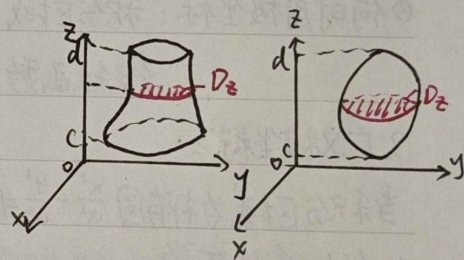 z
d
Dz
c
o
y
x
z
d
Dz
c
o
y
x